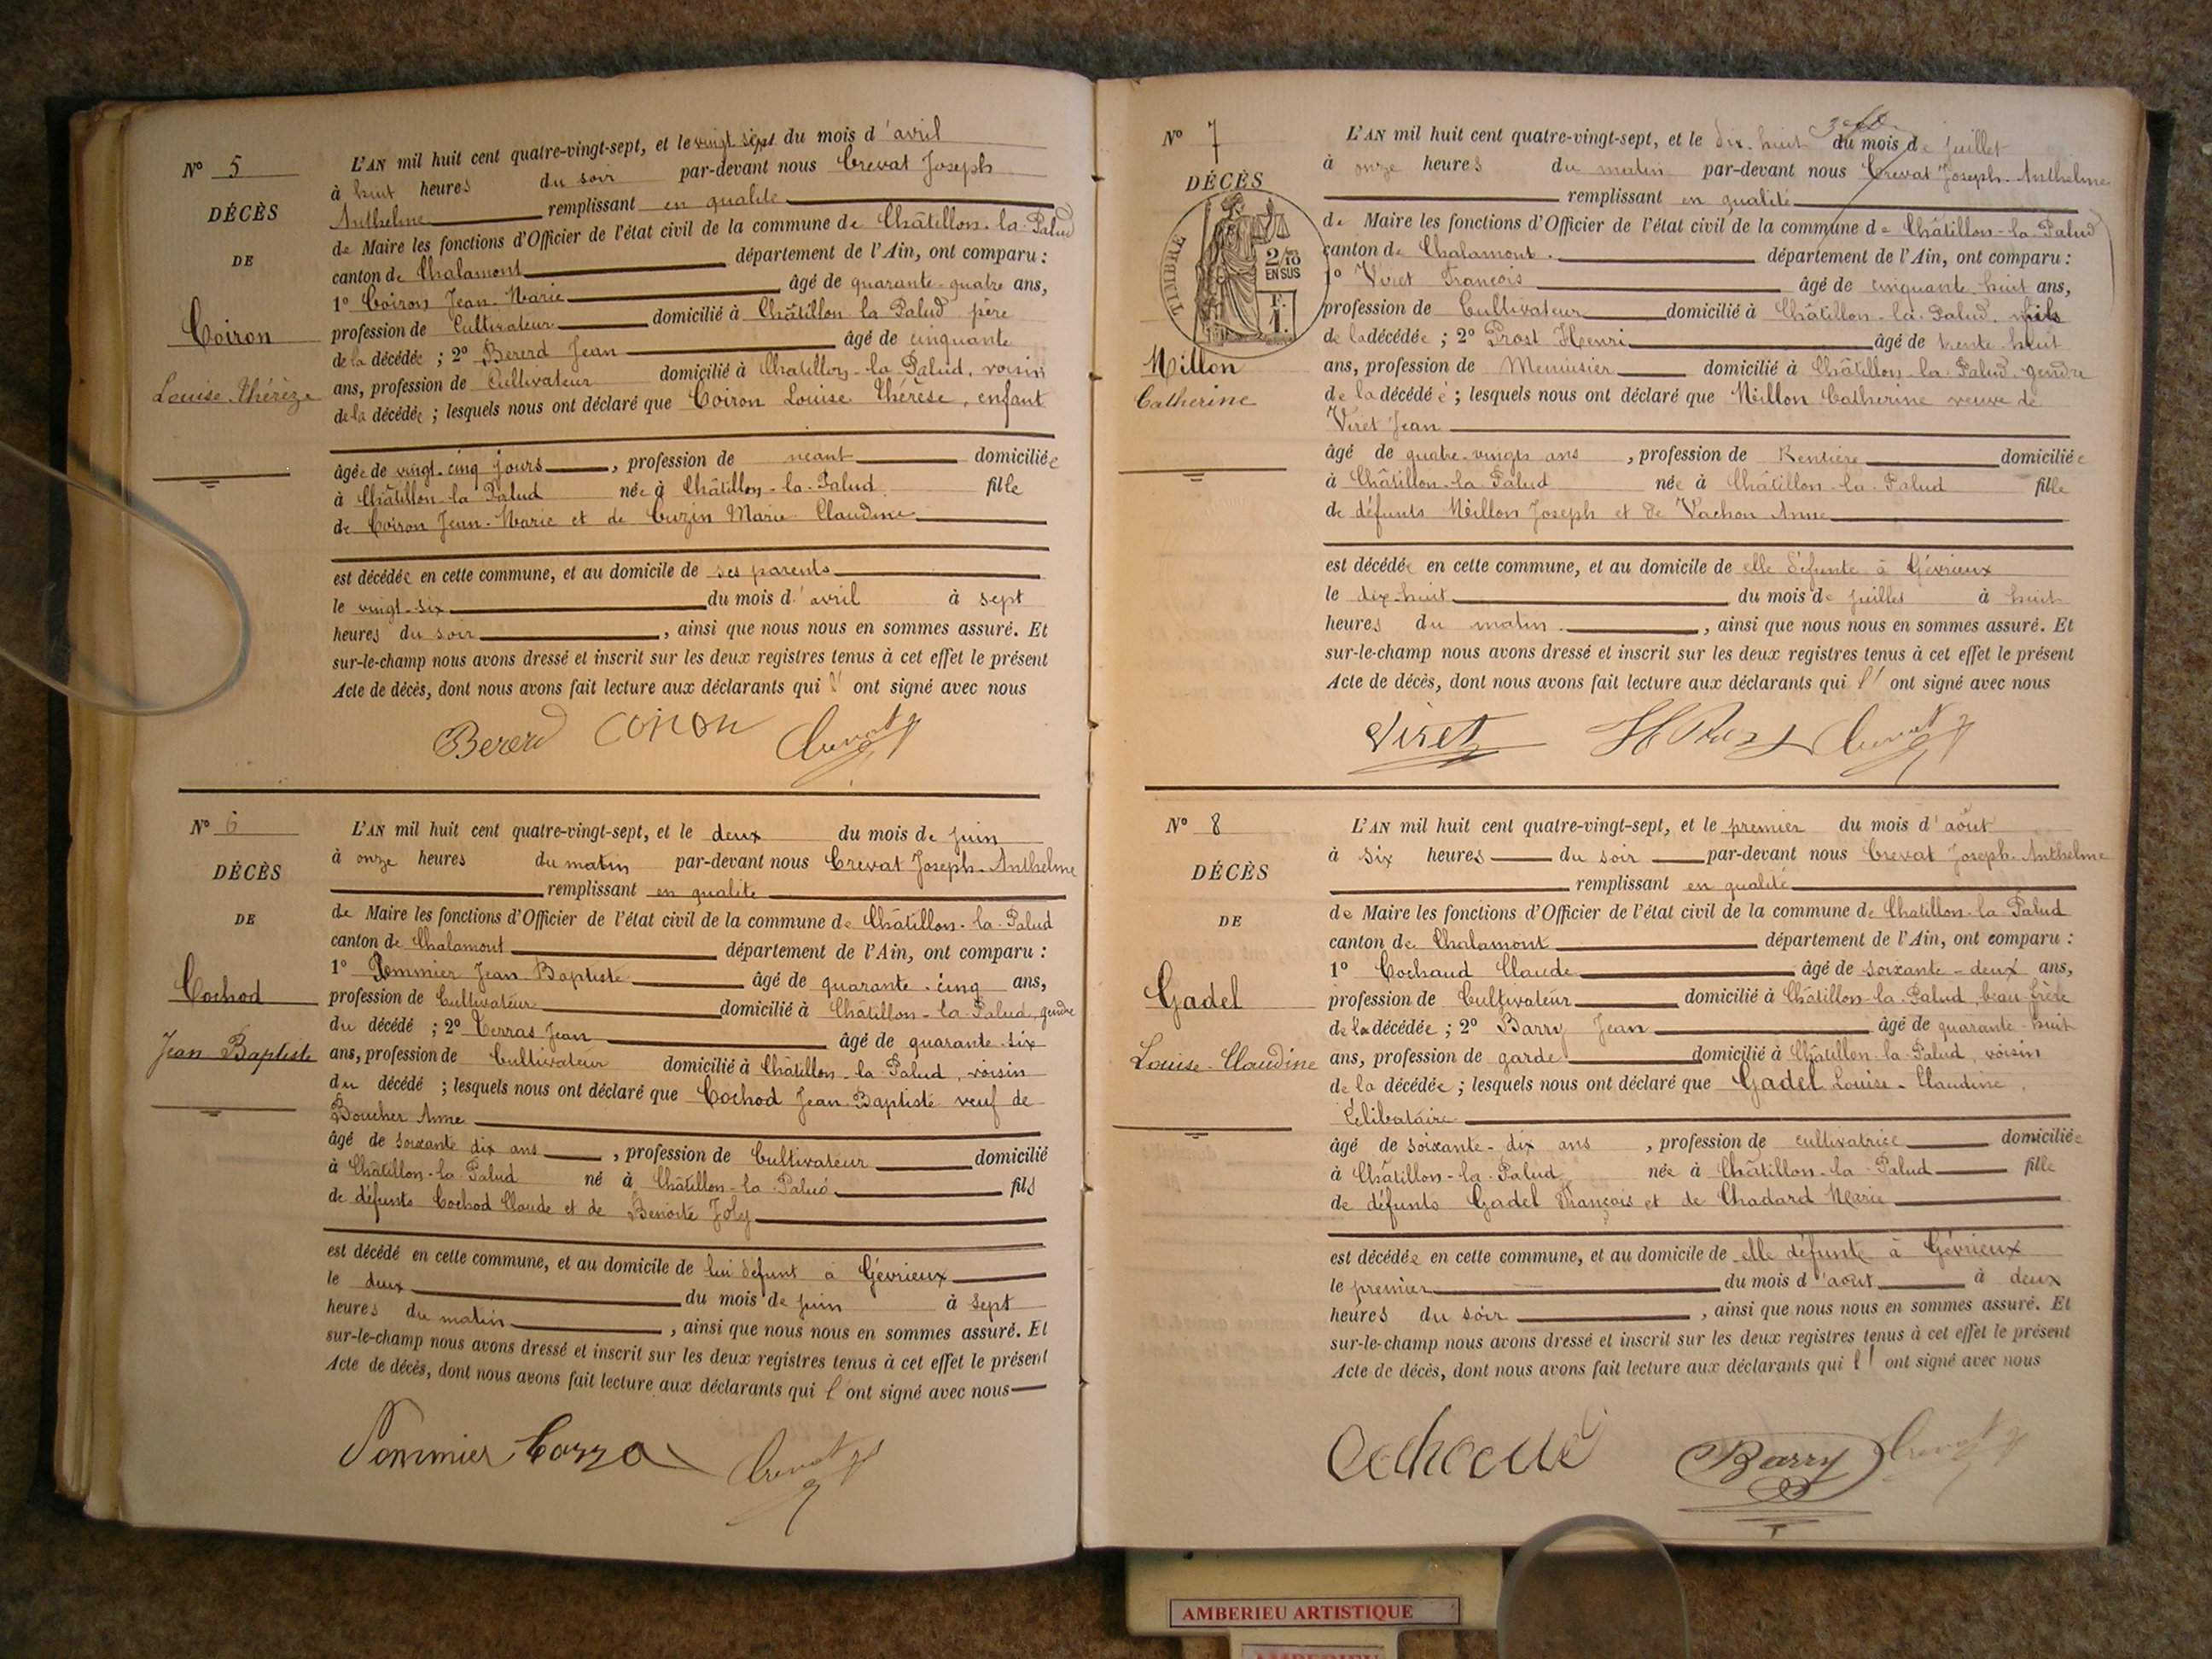 N° 5
DÉCÈS
DE
Coiron
Louise Thérèze
L'AN mil huit cent quatre-vingt-sept, et le vingt sept du mois d'avril
à huit heures du soir par-devant nous Crevat Joseph
Anthelme remplissant en qualité
de Maire les fonctions d'Officier de l'état civil de la commune de Châtillon-la-Palud
canton de Chalamont département de l'Ain, ont comparu :
1° Coiron Jean-Marie âgé de quarante-quatre ans,
profession de Cultivateur domicilié à Châtillon la Palud père
de la décédée ; 2° Bererd Jean âgé de cinquante
ans, profession de Cultivateur domicilié à Chatillon-la-Palud, voisin
de la décédée ; lesquels nous ont déclaré que Coiron Louise Thérèse, enfant
âgée de vingt-cinq jours, profession de néant domiciliée
à Châtillon-la-Palud née à Châtillon-la-Palud fille
de Coiron Jean-Marie et de Cuzin Marie Claudine
est décédée en cette commune, et au domicile de ses parents
le vingt-six du mois d'avril à sept
heures du soir, ainsi que nous nous en sommes assuré. Et
sur-le-champ nous avons dressé et inscrit sur les deux registres tenus à cet effet le présent
Acte de décès, dont nous avons fait lecture aux déclarants qui l' ont signé avec nous
Bererd Coiron Crevat
N° 6
DÉCÈS
DE
Cochod
Jean Baptiste
L'AN mil huit cent quatre-vingt-sept, et le deux du mois de juin
à onze heures du matin par-devant nous Crevat Joseph-Anthelme
remplissant en qualité
de Maire les fonctions d'Officier de l'état civil de la commune de Châtillon-la-Palud
canton de Chalamont département de l'Ain, ont comparu :
1° Pommier Jean Baptiste âgé de quarante-cinq ans,
profession de Cultivateur domicilié à Châtillon-la-Palud, gendre
du décédé ; 2° Terras Jean âgé de quarante-six
ans, profession de Cultivateur domicilié à Châtillon-la-Palud, voisin
du décédé ; lesquels nous ont déclaré que Cochod Jean-Baptiste veuf de
Boucher Anne
âgé de soixante dix ans, profession de Cultivateur domicilié
à Châtillon-la-Palud né à Châtillon-la-Palud fils
de défunts Cochod Claude et de Benoîte Joly
est décédé en cette commune, et au domicile de lui défunt à Gévrieux
le deux du mois de juin à sept
heures du matin, ainsi que nous nous en sommes assuré. Et
sur-le-champ nous avons dressé et inscrit sur les deux registres tenus à cet effet le présent
Acte de décès, dont nous avons fait lecture aux déclarants qui l' ont signé avec nous
Pommier Crevat
N° 7
DÉCÈS
TIMBRE
2/10
EN SUS
F.
1.
Millon
Catherine
L'AN mil huit cent quatre-vingt-sept, et le dix-huit du mois de juillet
à onze heures du matin par-devant nous Crevat Joseph-Anthelme
remplissant en qualité
de Maire les fonctions d'Officier de l'état civil de la commune de Châtillon-la-Palud
canton de Chalamont. département de l'Ain, ont comparu :
1° Viret François âgé de cinquante-huit ans,
profession de Cultivateur domicilié à Châtillon-la-Palud, fils
de la décédée ; 2° Prost Henri âgé de trente-huit
ans, profession de Menuisier domicilié à Châtillon-la-Palud gendre
de la décédée ; lesquels nous ont déclaré que Millon Catherine veuve de
Viret Jean
âgé de quatre-vingts ans, profession de Rentière domiciliée
à Châtillon-la-Palud née à Châtillon-la-Palud fille
de défunts Millon Joseph et de Vachon Anne
est décédée en cette commune, et au domicile de elle défunte à Gévrieux
le dix-huit du mois de juillet à huit
heures du matin, ainsi que nous nous en sommes assuré. Et
sur-le-champ nous avons dressé et inscrit sur les deux registres tenus à cet effet le présent
Acte de décès, dont nous avons fait lecture aux déclarants qui l' ont signé avec nous
Viret H Prost Crevat
N° 8
DÉCÈS
DE
Gadel
Louise-Claudine
L'AN mil huit cent quatre-vingt-sept, et le premier du mois d'août
à six heures du soir par-devant nous Crevat Joseph-Anthelme
remplissant en qualité
de Maire les fonctions d'Officier de l'état civil de la commune de Chatillon-la-Palud
canton de Chalamont département de l'Ain, ont comparu :
1° Cochaud Claude âgé de soixante-deux ans,
profession de Cultivateur domicilié à Châtillon-la-Palud, beau-frère
de la décédée ; 2° Barry Jean âgé de quarante-huit
ans, profession de garde domicilié à Châtillon-la-Palud, voisin
de la décédée ; lesquels nous ont déclaré que Gadel Louise-Claudine,
Célibataire
âgé de soixante-dix ans, profession de cultivatrice domiciliée
à Châtillon-la-Palud née à Châtillon-la-Palud fille
de défunts Gadel François et de Chadard Marie
est décédée en cette commune, et au domicile de elle défunte à Gévrieux
le premier du mois d'août à deux
heures du soir, ainsi que nous nous en sommes assuré. Et
sur-le-champ nous avons dressé et inscrit sur les deux registres tenus à cet effet le présent
Acte de décès, dont nous avons fait lecture aux déclarants qui l' ont signé avec nous
Barry Crevat
AMBERIEU ARTISTIQUE
AMBERIEU